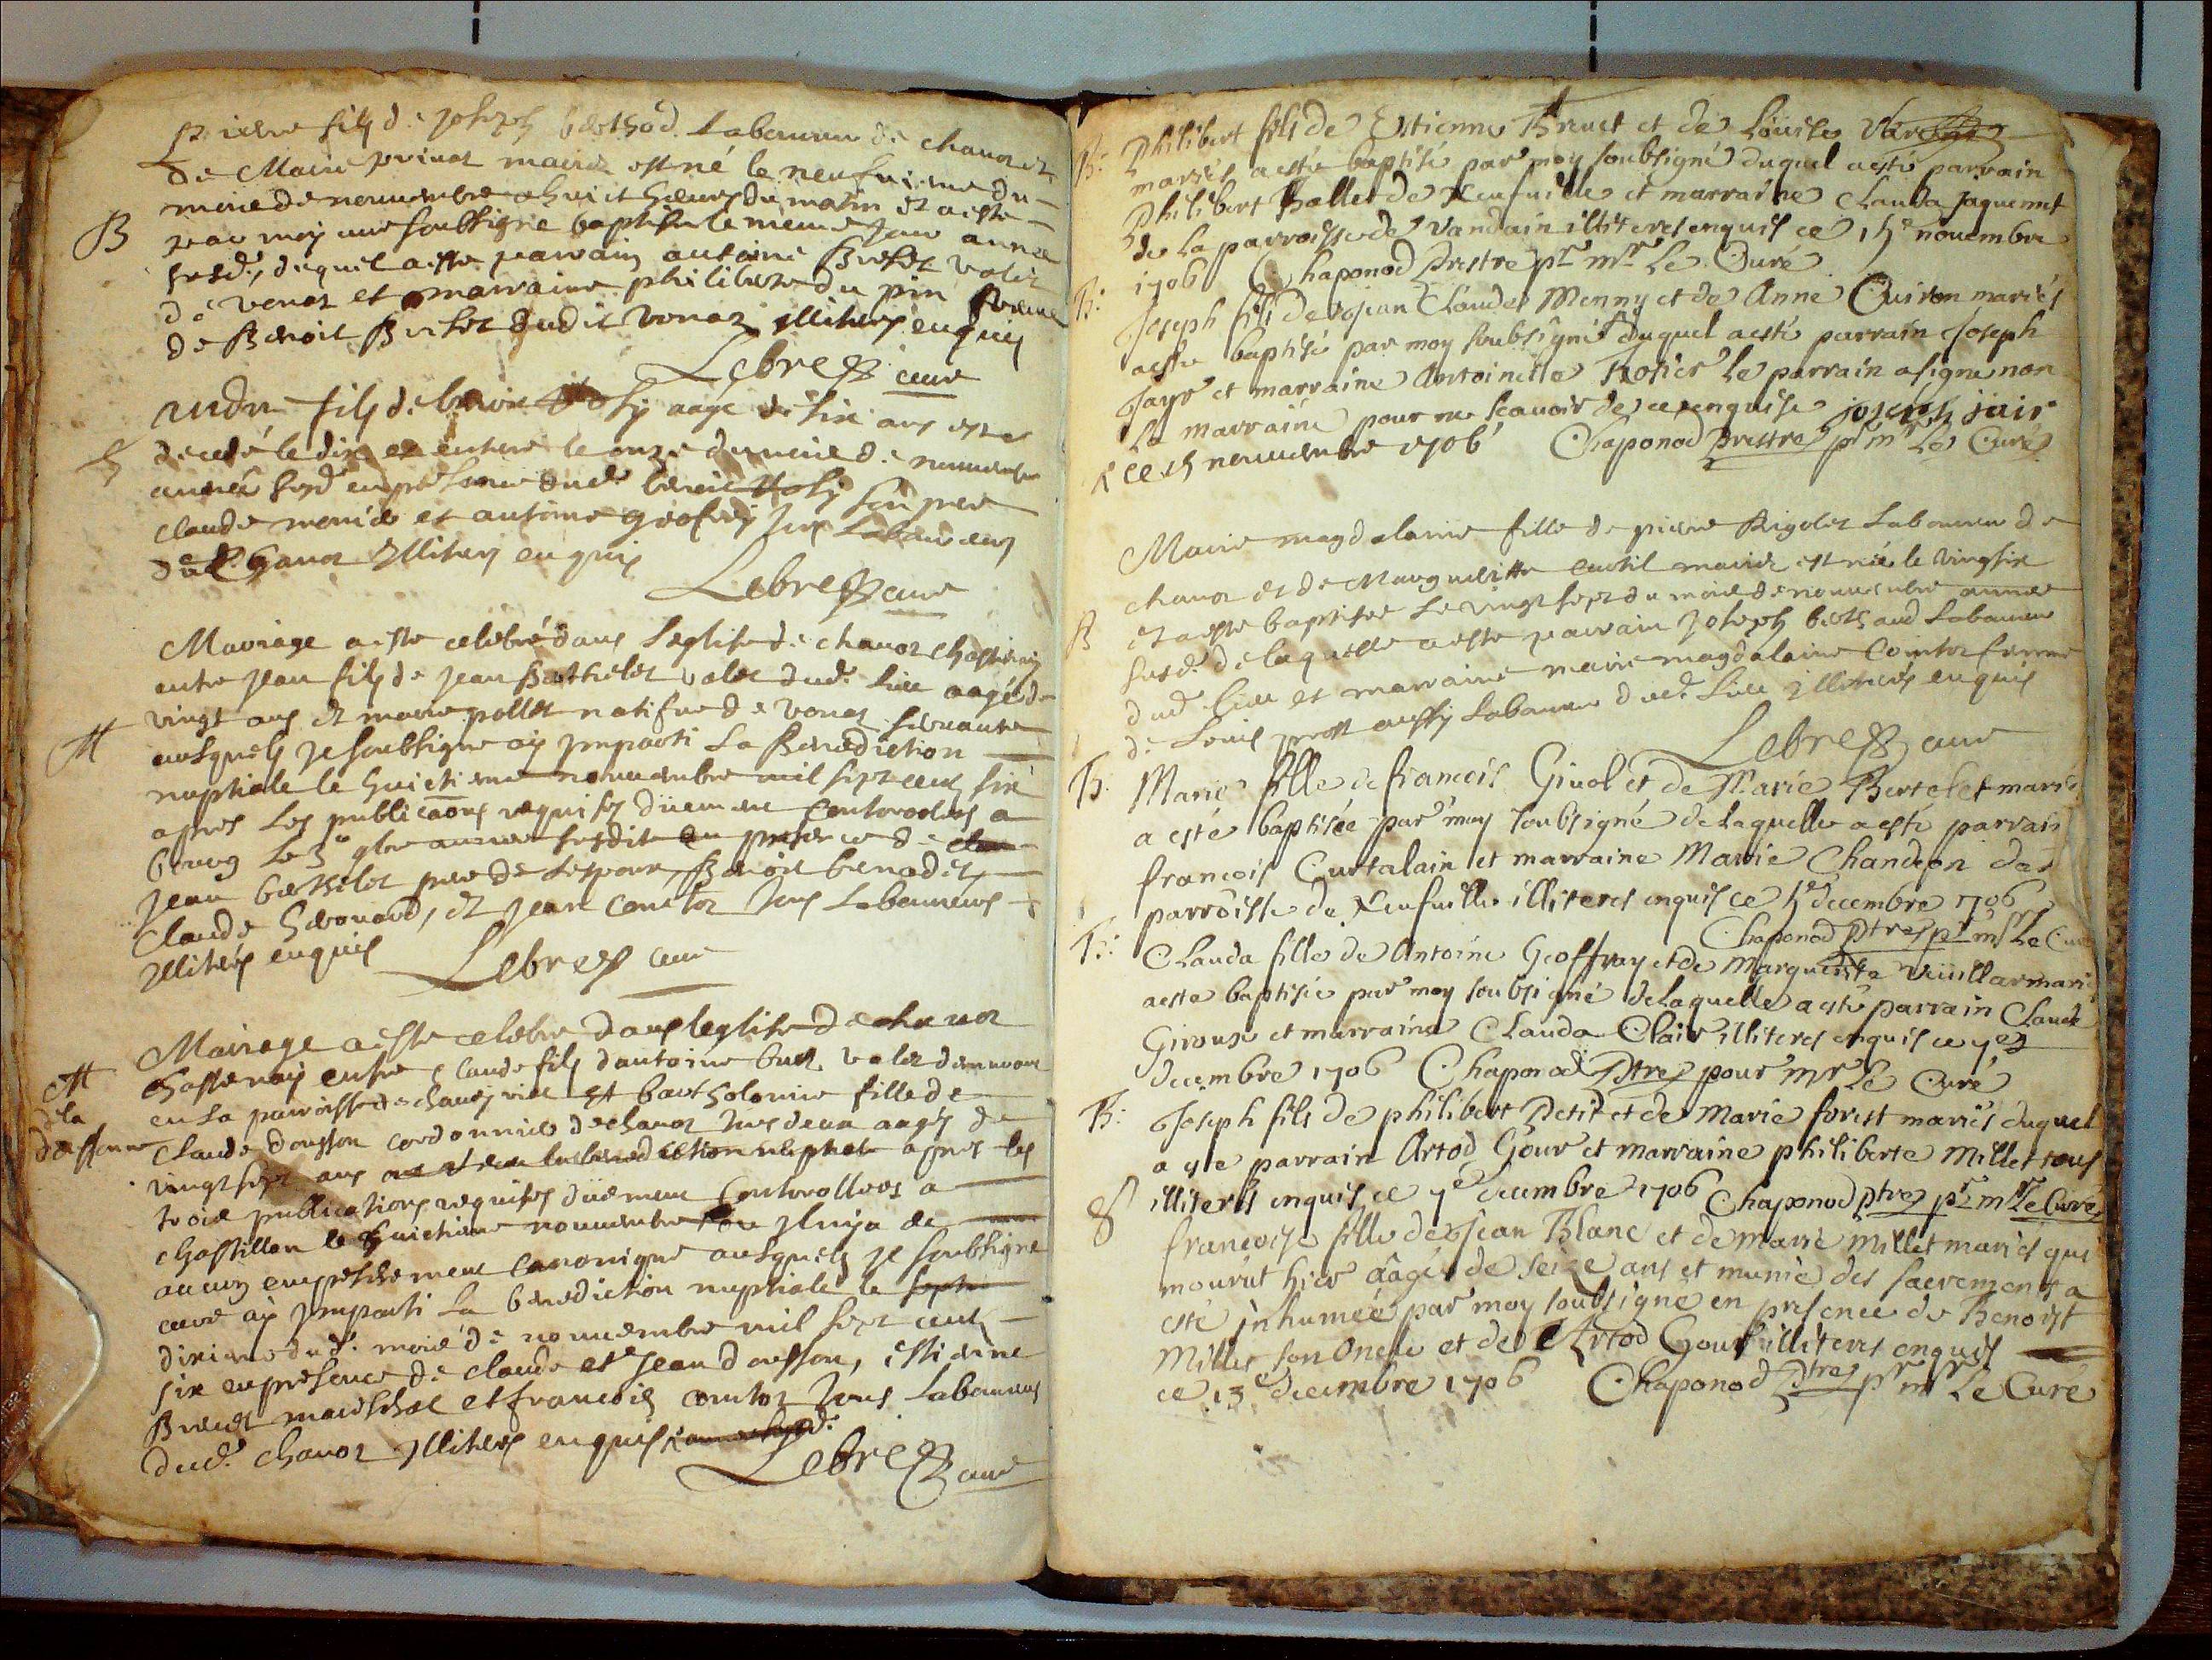 Pierre fils de Joseph berthod Laboureur de chanoz et
de Marie privat mariez est né le neufvieme du
mois de novembre a huict heures du matin et a esté
B par moy curé soubsigné baptisé le meme jour année
susd., duquel a esté parrain antoine Brevet valet
de vonas et marraine philiberte du pin femme
de Benoit Brevet dudit vonaz illiteres enquis
Lebrez curé
fils de benoit aagé de six ans est
decedé le dix et enterré le onze du mois de novembre
année susd en presence dud. benoit son pere
claude et antoine geofray tous Laboureurs
dud. Chanoz Illiteres enquis
Lebrez curé
Mariage a esté celebré dans Leglise de chanoz chastenay
entre Jean fils de Jean Barthelet valet dud. lieu aagé de
vingt ans et marie pollet natifve de vonas servante
M ausquels je soubsigné ay imparti La Benediction
nuptiale le huictieme novembre mil sept cent six
apres Les publicaons requises düement controolees a
bourg le 3e année susdite en presence de
Jean barthelet pere de Lespoux, Benoit benodet,
Claude , et Jean comtet tous Laboureurs
Illiteres enquis Lebrez curé
Mariage a esté celebré dans leglise de chanoz
M chastenay entre claude fils dantoine buet valet demeurant
en La parroisse de et bartholomie fille de
Claude dousson cordonnier de chanoz tous deux aagés de
vingt sept ans apres les
trois publications requises düement controollees a
chastillon le huictieme novembre
aucun empeschement canonique ausquels je soubsigné
curé ay imparti La benediction nuptiale le
dixieme dud. mois de novembre mil sept cent
six en presence de claude et Jean dousson, estienne
Brevet mareschal et francois comtet tous Laboureurs
dud. chanoz Illiteres enquis
Lebrez curé
B: Philibert fils de Estienne Brevet et de Loüise
mariés a esté baptisé par moy soubsigné duquel a esté parrain
Philibert Ballet de Neufville et marraine Clauda Jaquemet
de La parroisse de Vandain illiteres enquis ce 15e novembre
1706 Chaponod Prestre pr mr Le Curé
B: Joseph fils de Jean Claude Monny et de Anne Cuiron mariés
a esté baptisé par moy soubsigné duquel a esté parrain Joseph
Jayr et marraine Antoinette Rosier Le parrain a signé non
La marraine pour ne scavoir de ce enquise joseph jair
ce 15 novembre 1706 Chaponod prestre pr mr Le Curé
Marie magdalaine fille de pierre Rigolet Laboureur de
chanoz et de Marguerite curtil mariez est née le vingt six
B et a esté baptisée Le vingt sept du mois de novembre année
susd. de laquelle a esté parrain Joseph berthaud Laboureur
dud. lieu et marraine marie magdalaine Comtet femme
de Louis prost aussy Laboureur dud. Lieu illiteres enquis
Lebrez curé
B: Marie fille de francois Givol et de Marie Bertelet mariés
a esté baptisée par moy soubsigné de laquelle a esté parrain
francois Curtalain et marraine Marie Chandon de
parroisse de Neufville illiteres enquis ce 5e decembre 1706
Chaponod Ptre pr mr Le Curé
B: Clauda fille de Antoine Geoffray et de Marguerite Vüillar mariés
a esté baptisée par moy soubsigné de laquelle a esté parrain Claude
Girousе et marraine Clauda Clair illiteres enquis ce 7e
decembre 1706 Chaponod Ptre pour mr Le Curé
B: Joseph fils de philibert Petit et de Marie forest mariés duquel
a esté parrain Artod Gour et marraine philiberte Millet tous
illiteres enquis ce 7e decembre 1706 Chaponod Ptre pr mr Le Curé
S francoise fille de Jean Blanc et de marie Millet mariés qui
mourut hier aagée de seize ans et munie des sacrements a
esté inhumée par moy soubsigné en presence de Benoist
Millet son Oncle et de Artod Gour illiteres enquis
ce 13e decembre 1706 Chaponod Ptre pr mr Le Curé